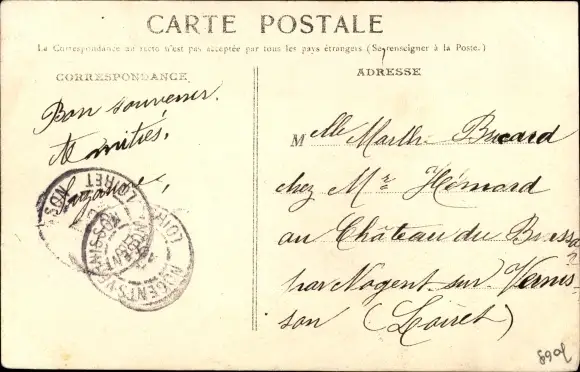 CARTE POSTALE
La Correspondance au recto n'est pas acceptée par tous les pays étrangers (Se renseigner à la Poste.)
CORRESPONDANCE
Bon souvenir.
Amitiés,
Suzanne,
ADRESSE
Melle Marthe Bucard
chez Mr Hémard
au Château du
par Nogent sur Vernis-
son (Loiret)
LOIRET
NOGENT-S-VERNISSON
LOIRET
NOGENT-S-V